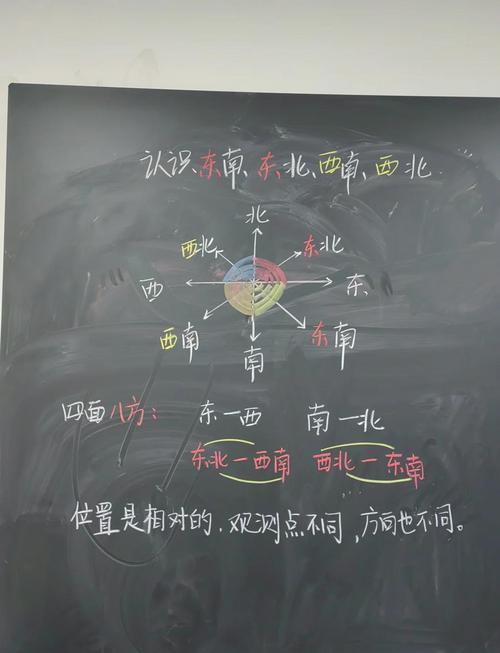 认识东南、东北、西南、西北
北
西北 东北
西 东
西南 东南
南
四面八方： 东—西 南—北
东北—西南 西北—东南
位置是相对的，观测点不同，方向也不同。